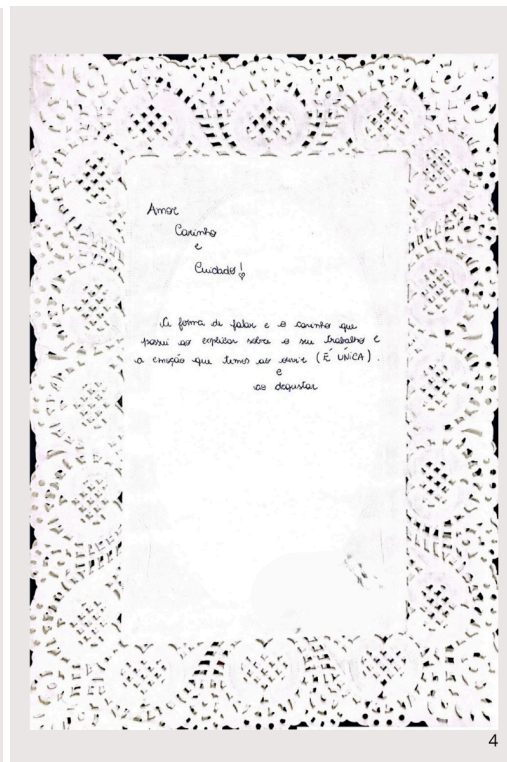 Amor
Carinho
e
Cuidado!
A forma de falar e o carinho que
possui ao explicar sobre o seu trabalho e
a emoção que temos ao ouvir (É UNICA).
e
ao degustar
4